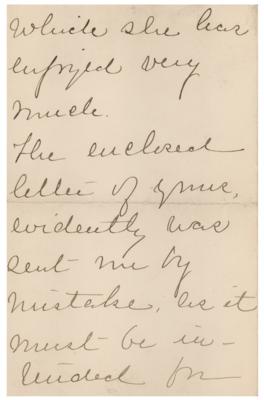 which she has
enjoyed very
much.
The enclosed
letter of yours,
evidently was
sent me by
mistake, as it
must be in-
tended for